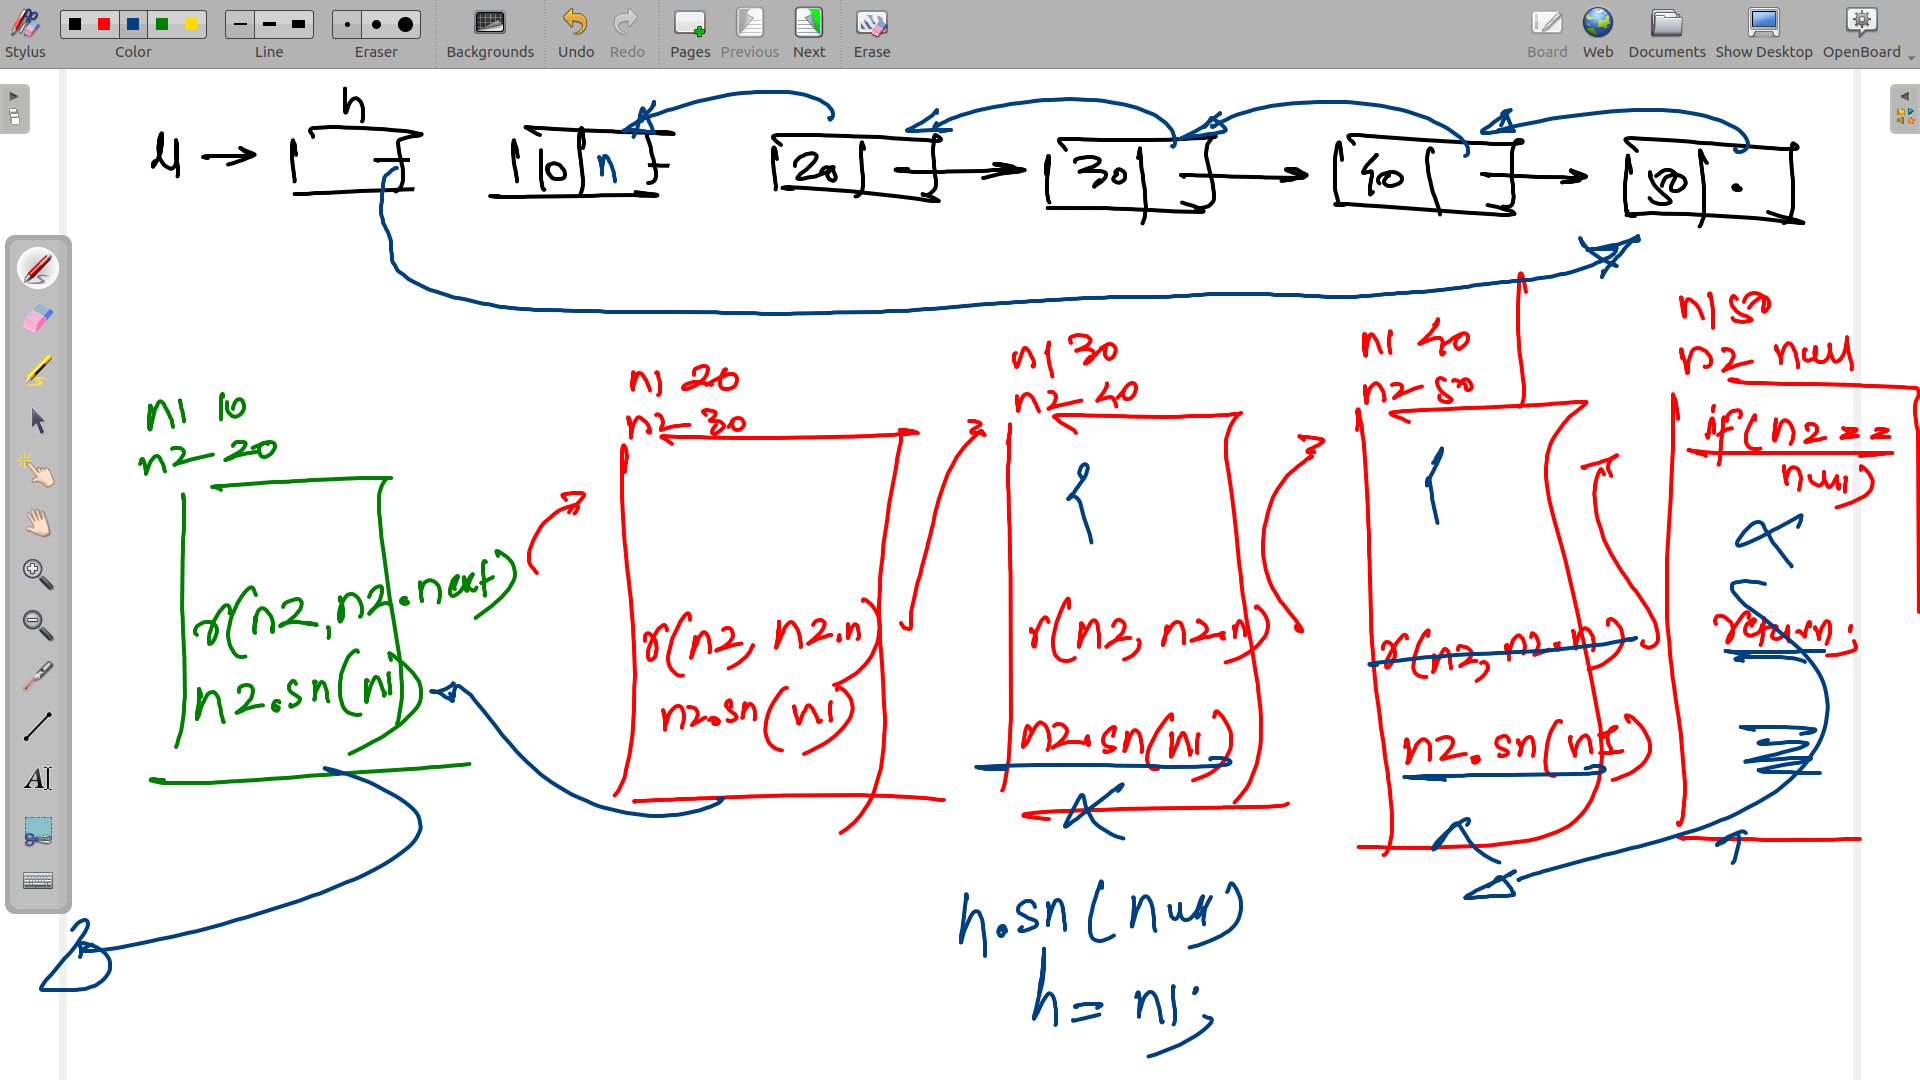 Stylus
Color
Line
Eraser
Backgrounds
Undo
Redo
Pages
Previous
Next
Erase
Board
Web
Documents
Show Desktop
OpenBoard
h
10 n
20
30
40
50
n1 10
n2 20
r(n2, n2.next)
n2.sn(n1)
n1 20
n2 30
r(n2, n2.n)
n2.sn(n1)
n1 30
n2 40
r(n2, n2.n)
n2.sn(n1)
n1 40
n2 50
r(n2, n2.n)
n2.sn(n1)
n1 50
n2 null
if(n2==
null)
return;
h.sn(null)
h = n1;